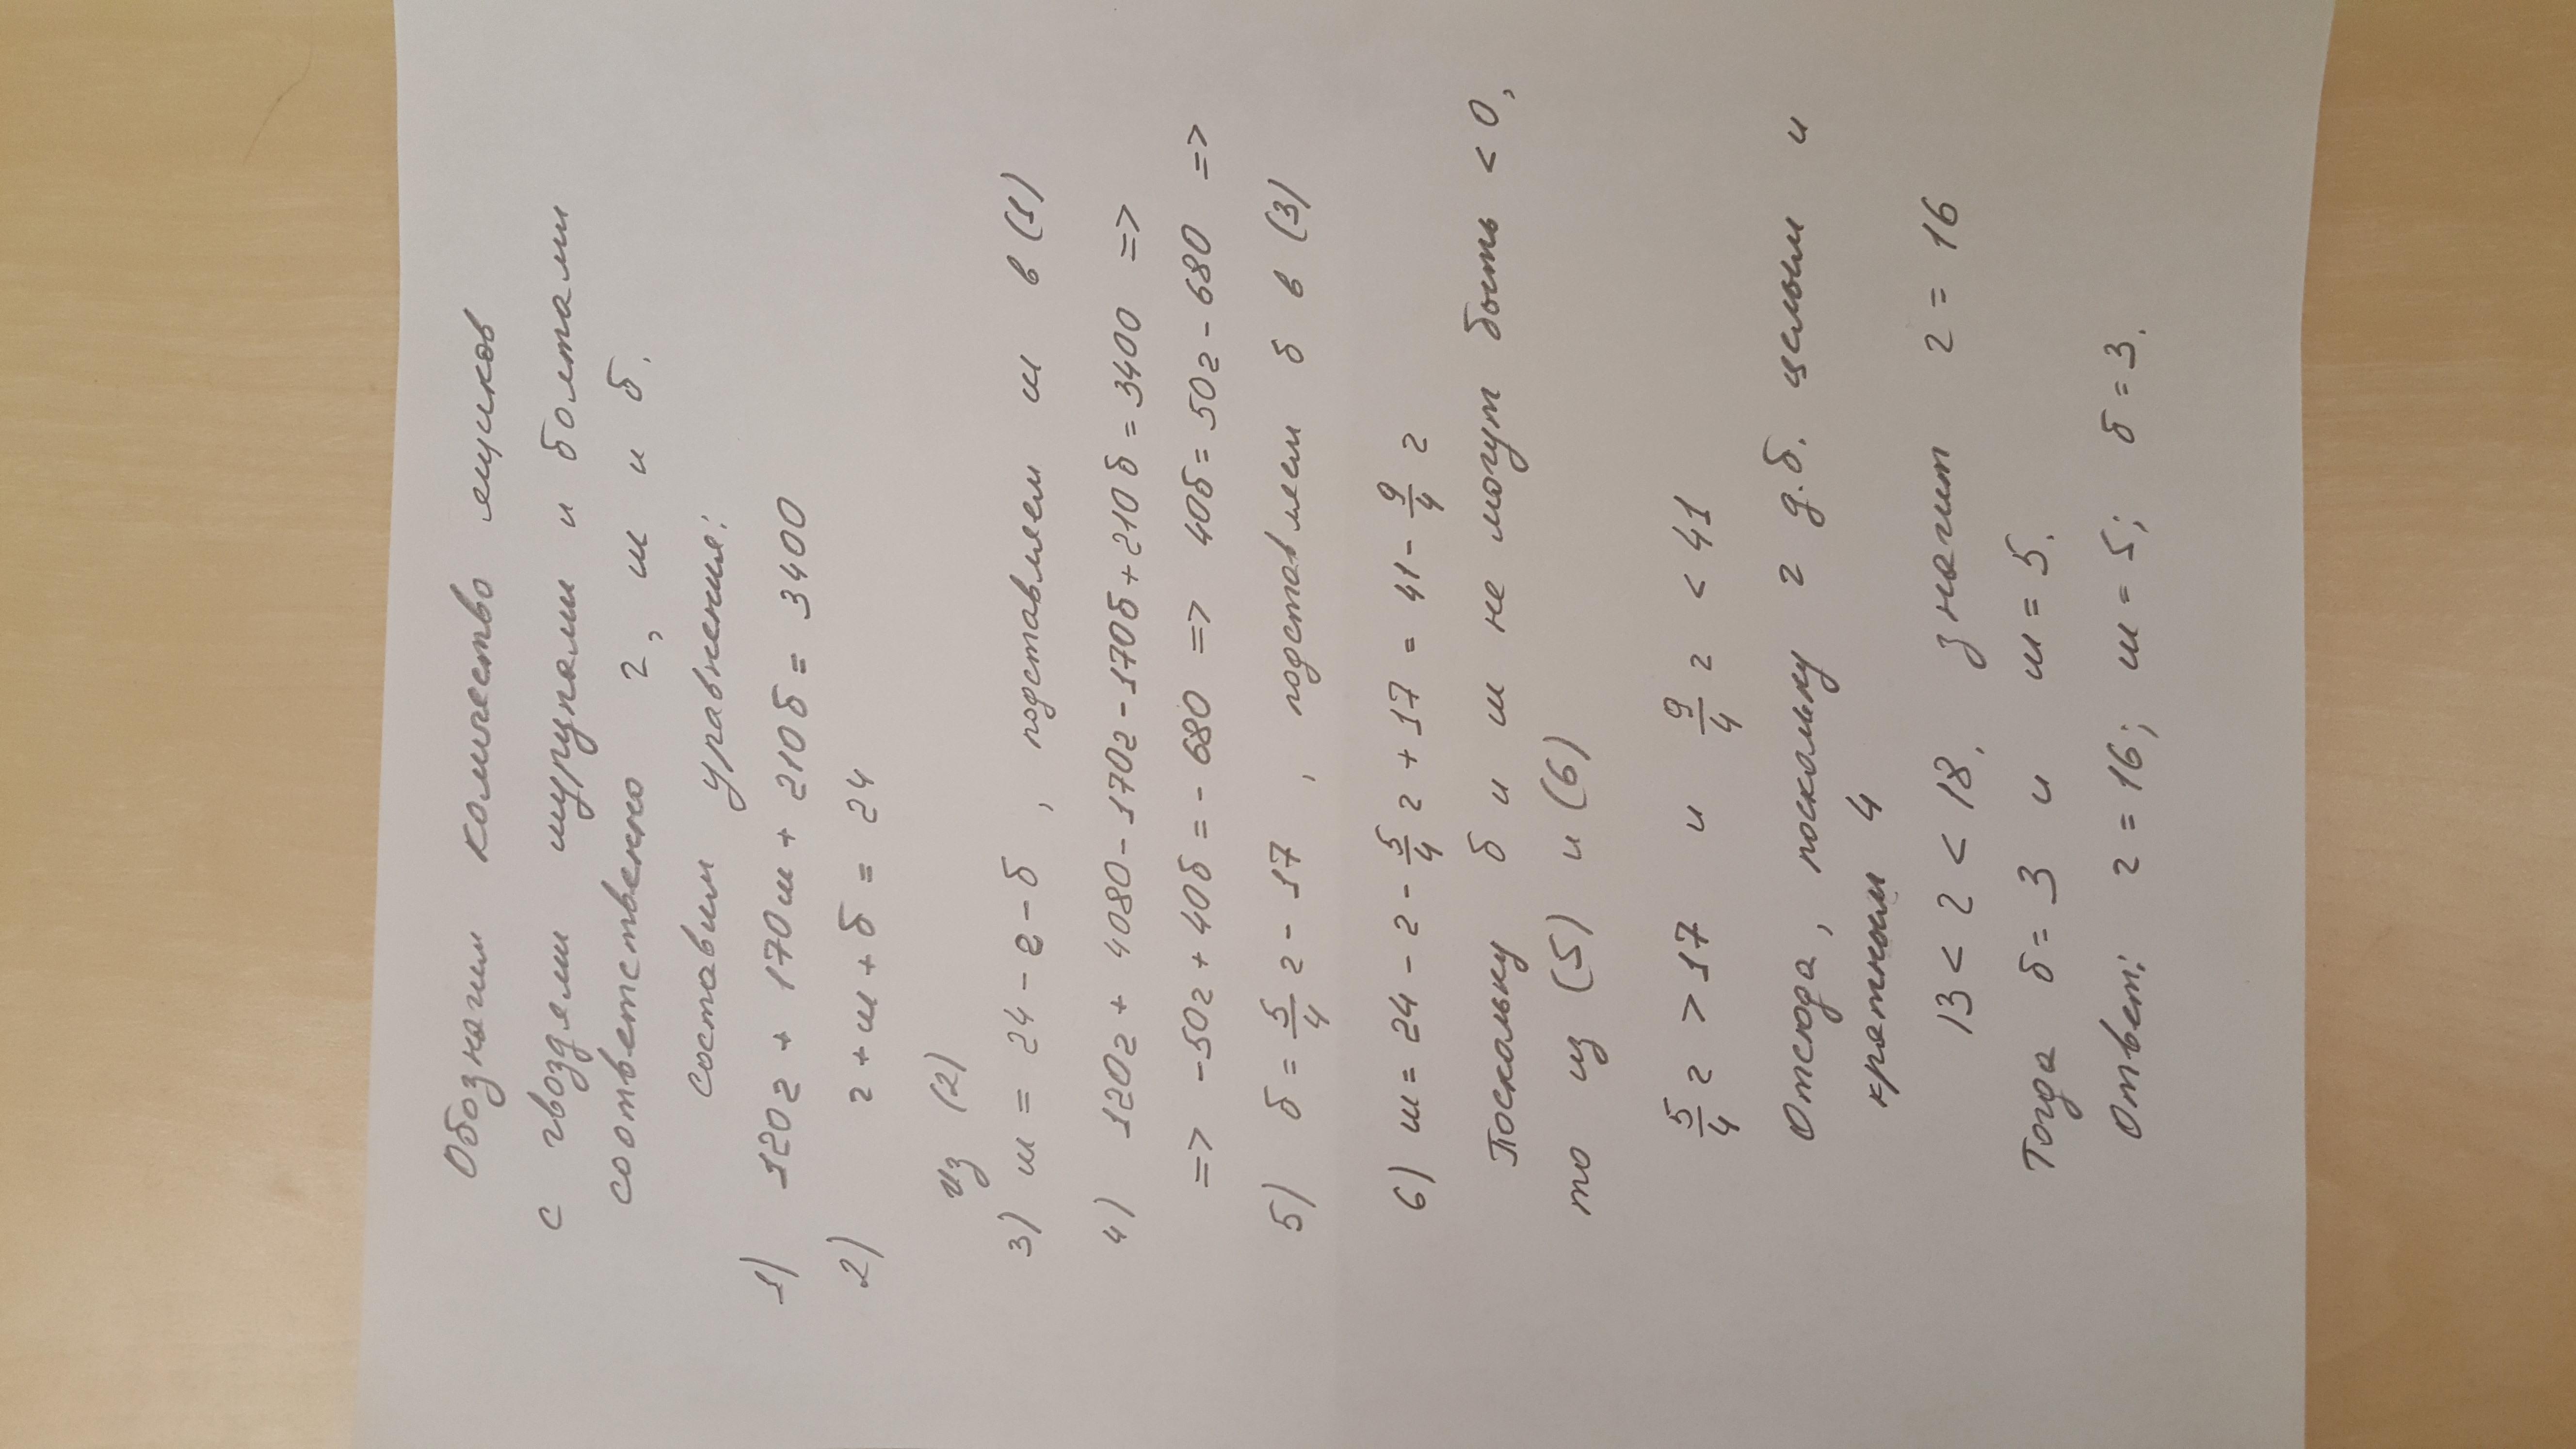 Обозначим количество ящиков
с гвоздями шурупами и болтами
соответственно г, ш и б.
составим уравнения:
1) 120г + 170ш + 210б = 3400
2) г + ш + б = 24
из (2)
3) ш = 24 - г - б , подставляем ш в (1)
4) 120г + 4080 - 170г - 170б + 210б = 3400 =>
=> -50г + 40б = -680 => 40б = 50г - 680 =>
5) б = 5/4 г - 17 , подставляем б в (3)
6) ш = 24 - г - 5/4 г + 17 = 41 - 9/4 г
Поскольку б и ш не могут быть < 0,
то из (5) и (6)
5/4 г > 17 и 9/4 г < 41
Отсюда, поскольку г д.б. целым и
кратным 4
13 < г < 18, значит г = 16
Тогда б = 3 и ш = 5.
Ответ: г = 16; ш = 5; б = 3.